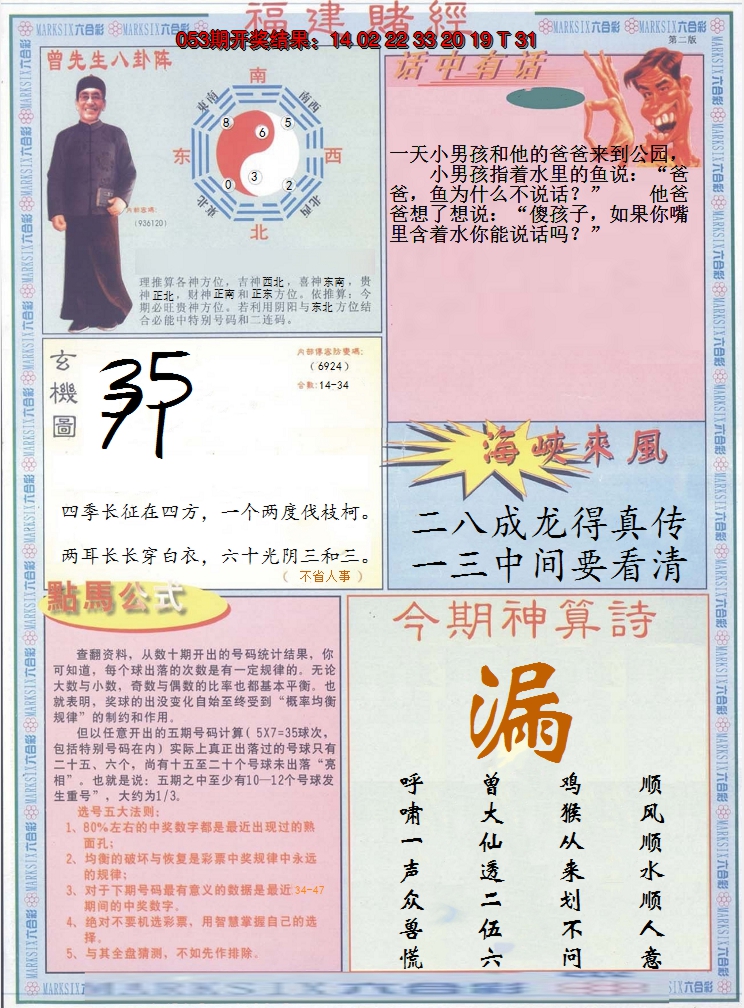 福建賭經
053期开奖结果：14 02 22 33 20 19 T 31
第二版
MARKSIX六合彩
曾先生八卦阵
南
東南
西南
东
西
東北
西北
北
8
6
5
0
3
2
内部密碼：
（936120）
理推算各神方位，吉神西北，喜神东南，贵
神正北，财神正南和正东方位。依推算：今
期必旺贵神方位。若利用阴阳与东北方位结
合必能中特别号码和二连码。
话中有话
一天小男孩和他的爸爸来到公园，
小男孩指着水里的鱼说：“爸
爸，鱼为什么不说话？” 他爸
爸想了想说：“傻孩子，如果你嘴
里含着水你能说话吗？”
玄機圖
35
内部傳密防變碼：
（6924）
合数：14-34
四季长征在四方，一个两度伐枝柯。
两耳长长穿白衣，六十光阴三和三。
（ 不省人事 ）
海峽來風
二八成龙得真传
一三中间要看清
點馬公式
查翻资料，从数十期开出的号码统计结果，你
可知道，每个球出落的次数是有一定规律的。无论
大数与小数，奇数与偶数的比率也都基本平衡。也
就表明，奖球的出没变化自始至终受到“概率均衡
规律”的制约和作用。
但以任意开出的五期号码计算（ 5X7=35球次，
包括特别号码在内）实际上真正出落过的号球只有
二十五、六个，尚有十五至二十个号球未出落“亮
相”。也就是说：五期之中至少有10—12个号球发
生重号”，大约为1/3。
选号五大法则：
1、80%左右的中奖数字都是最近出现过的熟
面孔；
2、均衡的破坏与恢复是彩票中奖规律中永远
的规律；
3、对于下期号码最有意义的数据是最近34-47
期间的中奖数字。
4、绝对不要机选彩票，用智慧掌握自己的选
择。
5、与其全盘猜测，不如先作排除。
今期神算詩
漏
顺风顺水顺人意
鸡猴从来划不问
曾大仙透二伍六
呼啸一声众兽慌